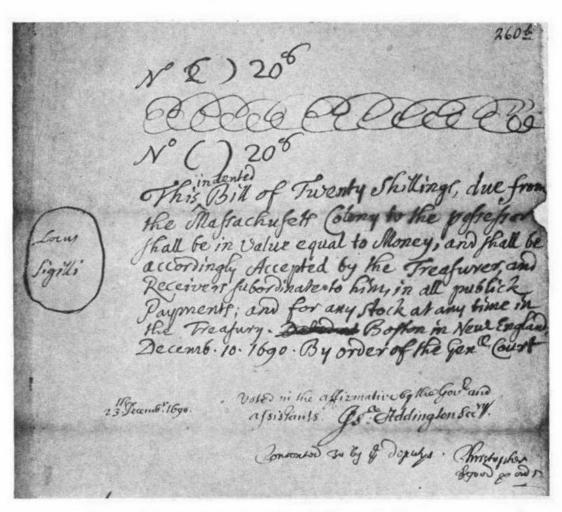 260b
No ( ) 20s
No ( ) 20s
indented
This Bill of Twenty Shillings, due from
the Massachusets Colony to the possessor
shall be in value equal to Money, and shall be
accordingly Accepted by the Treasurer, and
Receivers subordinate to him, in all publick
Payments; and for any Stock at any time in
the Treasury. Boston in New England
Decemb. 10. 1690. By order of the Genll Court
Locus
Sigilli
Voted in the affirmative by the Govr and
23th Decembr. 1690.
assistants. Jsa Addington Secry.
Consented to by ye deputys. Christopher